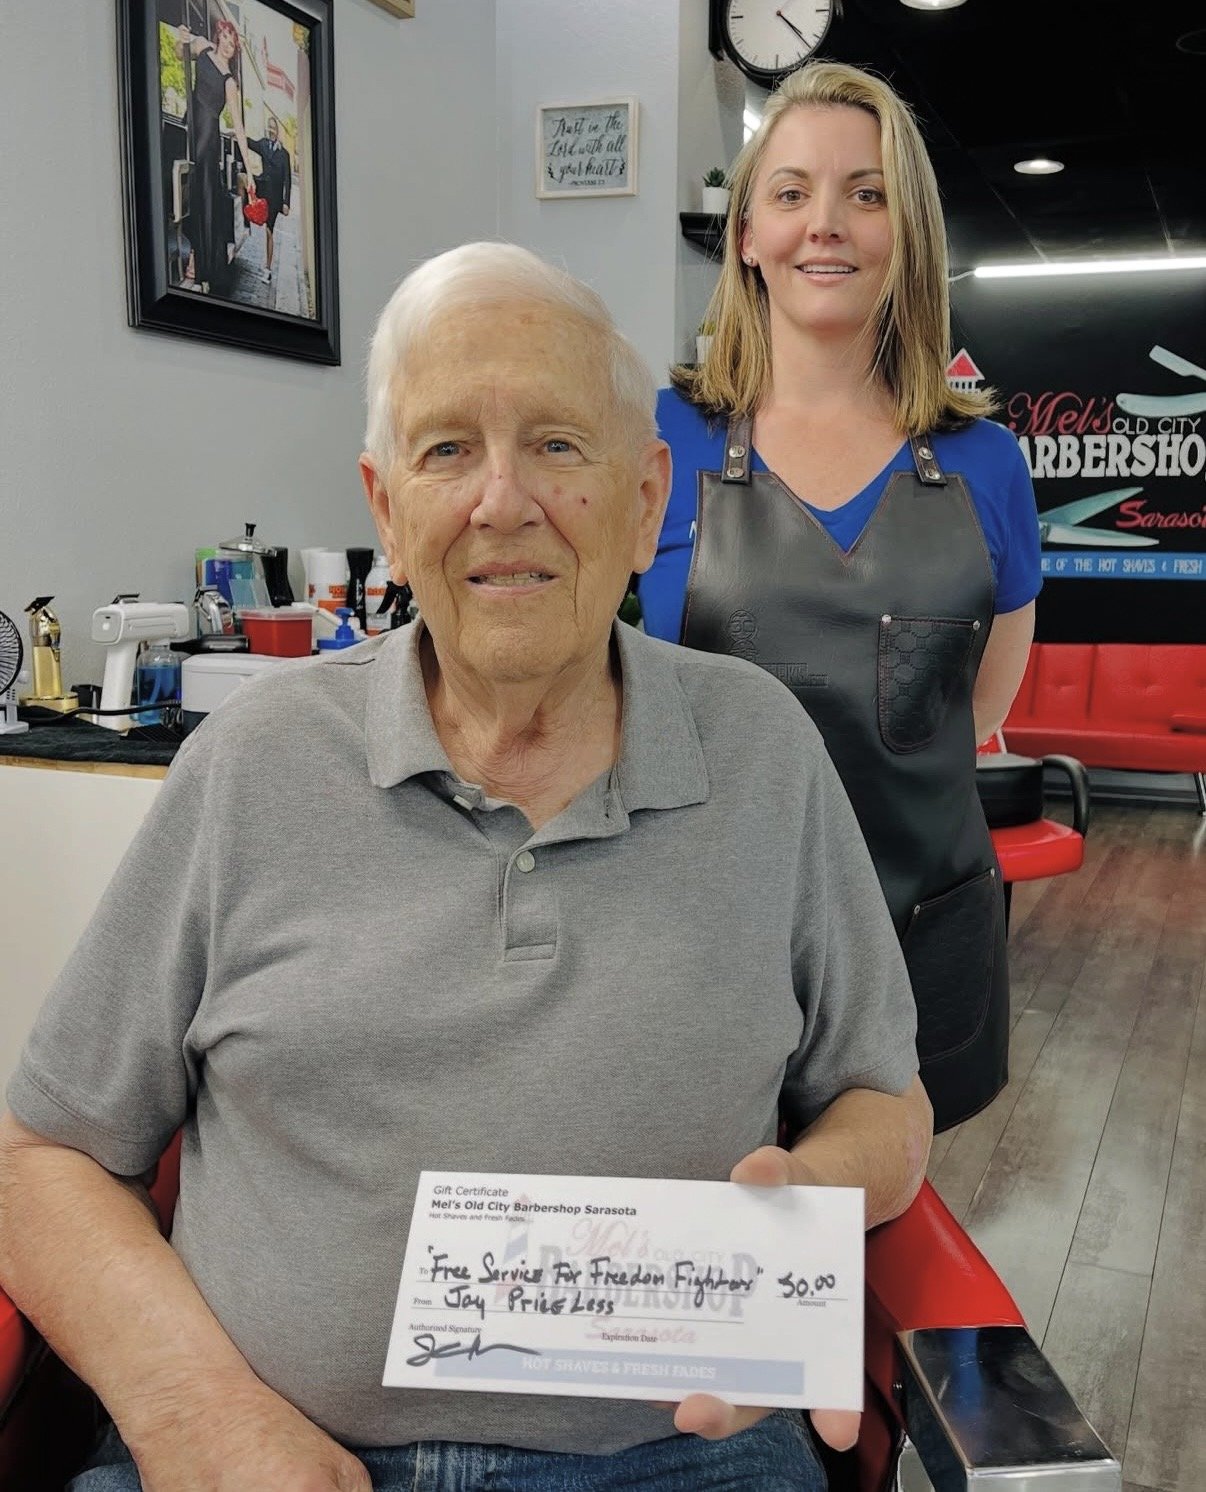 Trust in the
Lord with all
your heart
-PROVERBS 3:5
Mel's OLD CITY
ARBERSHO
Saraso
ME OF THE HOT SHAVES & FRESH
Gift Certificate
Mel's Old City Barbershop Sarasota
Hot Shaves and Fresh Fades
Mel's OLD CITY
BARBERSHOP
Sarasota
To "Free Service For Freedom Fighters" 50.00
From Jay PriceLess Amount
Authorized Signature Expiration Date
HOT SHAVES & FRESH FADES